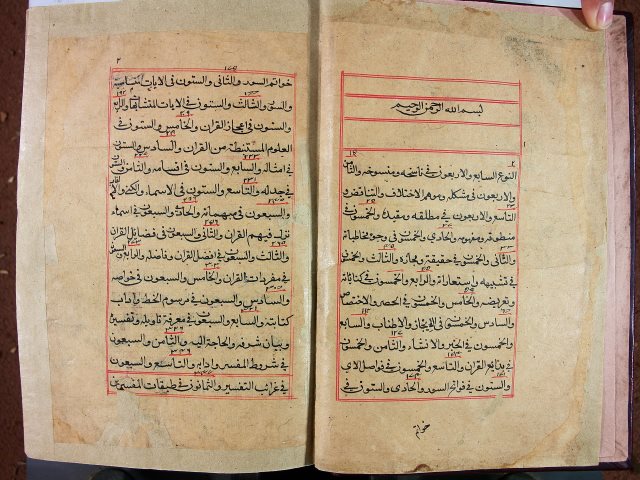 بسم الله الرحمن الرحيم
النوع السابع والاربعون في ناسخه ومنسوخه والثامن
والاربعون في مشكله وموهم الاختلاف والتناقض و
التاسع والاربعون في مطلقه ومقيده والخمسون في
منطوقه ومفهومه والحادي والخمسون في وجوه مخاطباته
والثاني والخمسون في حقيقته ومجازه والثالث والخمسون
في تشبيهه واستعاراته والرابع والخمسون في كناياته
وتعريضه والخامس والخمسون في الحصر والاختصاص
والسادس والخمسون في الايجاز والاطناب والسابع
والخمسون في الخبر والانشاء والثامن والخمسون
في بدايع القران والتاسع والخمسون في فواصل الاي
والستون في فواتح السور والحادي والستون في
خواتم
خواتم السور والثاني والستون في الايات
والثالث والستون في الايات المتشابهات والرابع
والستون في اعجاز القران والخامس والستون في
العلوم المستنبطة من القران والسادس والستون
في امثاله والسابع والستون في اقسامه والثامن والستون
في جدله والتاسع والستون في الاسماء والكنى
والسبعون في مبهماته والحادي والسبعون في اسماء
من نزل فيهم القران والثاني والسبعون في فضائل القران
والثالث والسبعون في افضل القران وفاضله والرابع والسبعون
في مفردات القران والخامس والسبعون في خواصه
والسادس والسبعون في مرسوم الخط واداب
كتابته والسابع والسبعون في معرفة تاويله وتفسيره
وبيان شرفه والحاجة اليه والثامن والسبعون
في شروط المفسر وادابه والتاسع والسبعون
في غرائب التفسير والثمانون في طبقات المفسرين